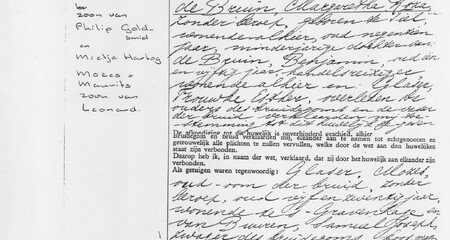 zoon van
Philip Gold-
smid
en
Mietje Hartog
Mozes =
Maurits
zoon van
Leonard.
de Bruin, Margaretha Rosa,
zonder beroep, geboren te Tiel,
wonende alhier, oud negentien
jaar, minderjarige dochter van:
de Bruin, Benjamin, oud een
en vijftig jaar, handelsreiziger
wonende alhier en: Glaser,
Vrouwtje Esther, overleden. De
ouders des bruidegoms en de vader
der bruid verklaarden mij toe-
stemming tot dit huwelijk te geven
De afkondiging tot dit huwelijk is onverhinderd geschied, alhier
Bruidegom en bruid verklaarden mij, elkander aan te nemen tot echtgenooten en
getrouwelijk alle plichten te zullen vervullen, welke door de wet aan den huwelijken
staat zijn verbonden.
Daarop heb ik, in naam der wet, verklaard, dat zij door het huwelijk aan elkander zijn
verbonden.
Als getuigen waren tegenwoordig: Glaser, Mozes,
oud-oom der bruid, zonder
beroep, oud vijf en twintig jaar,
wonende te 's-Gravenhage en
van Buuren, Samuel Joseph,
zwager des bruidegoms